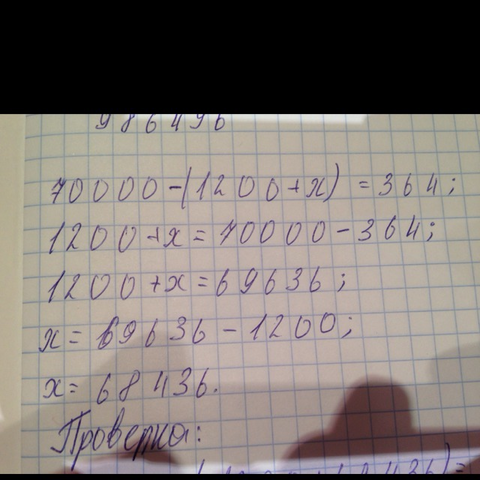 986496
70000-(1200+x)=364;
1200+x=70000-364;
1200+x=69636;
x=69636-1200;
x=68436.
Проверка: